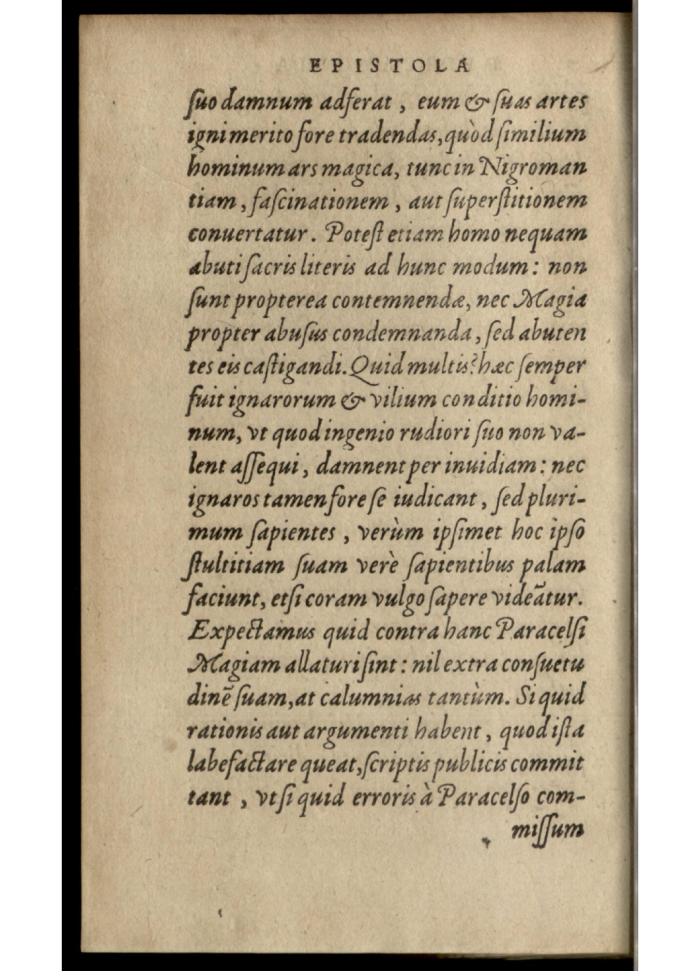 EPISTOLA
ſuo damnum adferat, eum & ſuas artes
igni merito fore tradendas, quòd ſimilium
hominum ars magica, tunc in Nigroman
tiam, faſcinationem, aut ſuperſtitionem
conuertatur. Poteſt etiam homo nequam
abuti ſacris literis ad hunc modum: non
ſunt propterea contemnendæ, nec Magia
propter abuſus condemnanda, ſed abuten
tes eis caſtigandi. Quid multis? hæc ſemper
fuit ignarorum & vilium conditio homi-
num, vt quod ingenio rudiori ſuo non va-
lent aſſequi, damnent per inuidiam: nec
ignaros tamen fore ſe iudicant, ſed pluri-
mum ſapientes, verùm ipſimet hoc ipſo
ſtultitiam ſuam verè ſapientibus palam
faciunt, etſi coram vulgo ſapere videātur.
Expectamus quid contra hanc Paracelſi
Magiam allaturi ſint: nil extra conſuetu
dinē ſuam, at calumnias tantùm. Si quid
rationis aut argumenti habent, quod iſta
labefactare queat, ſcriptis publicis commit
tant, vt ſi quid erroris à Paracelſo com-
miſſum